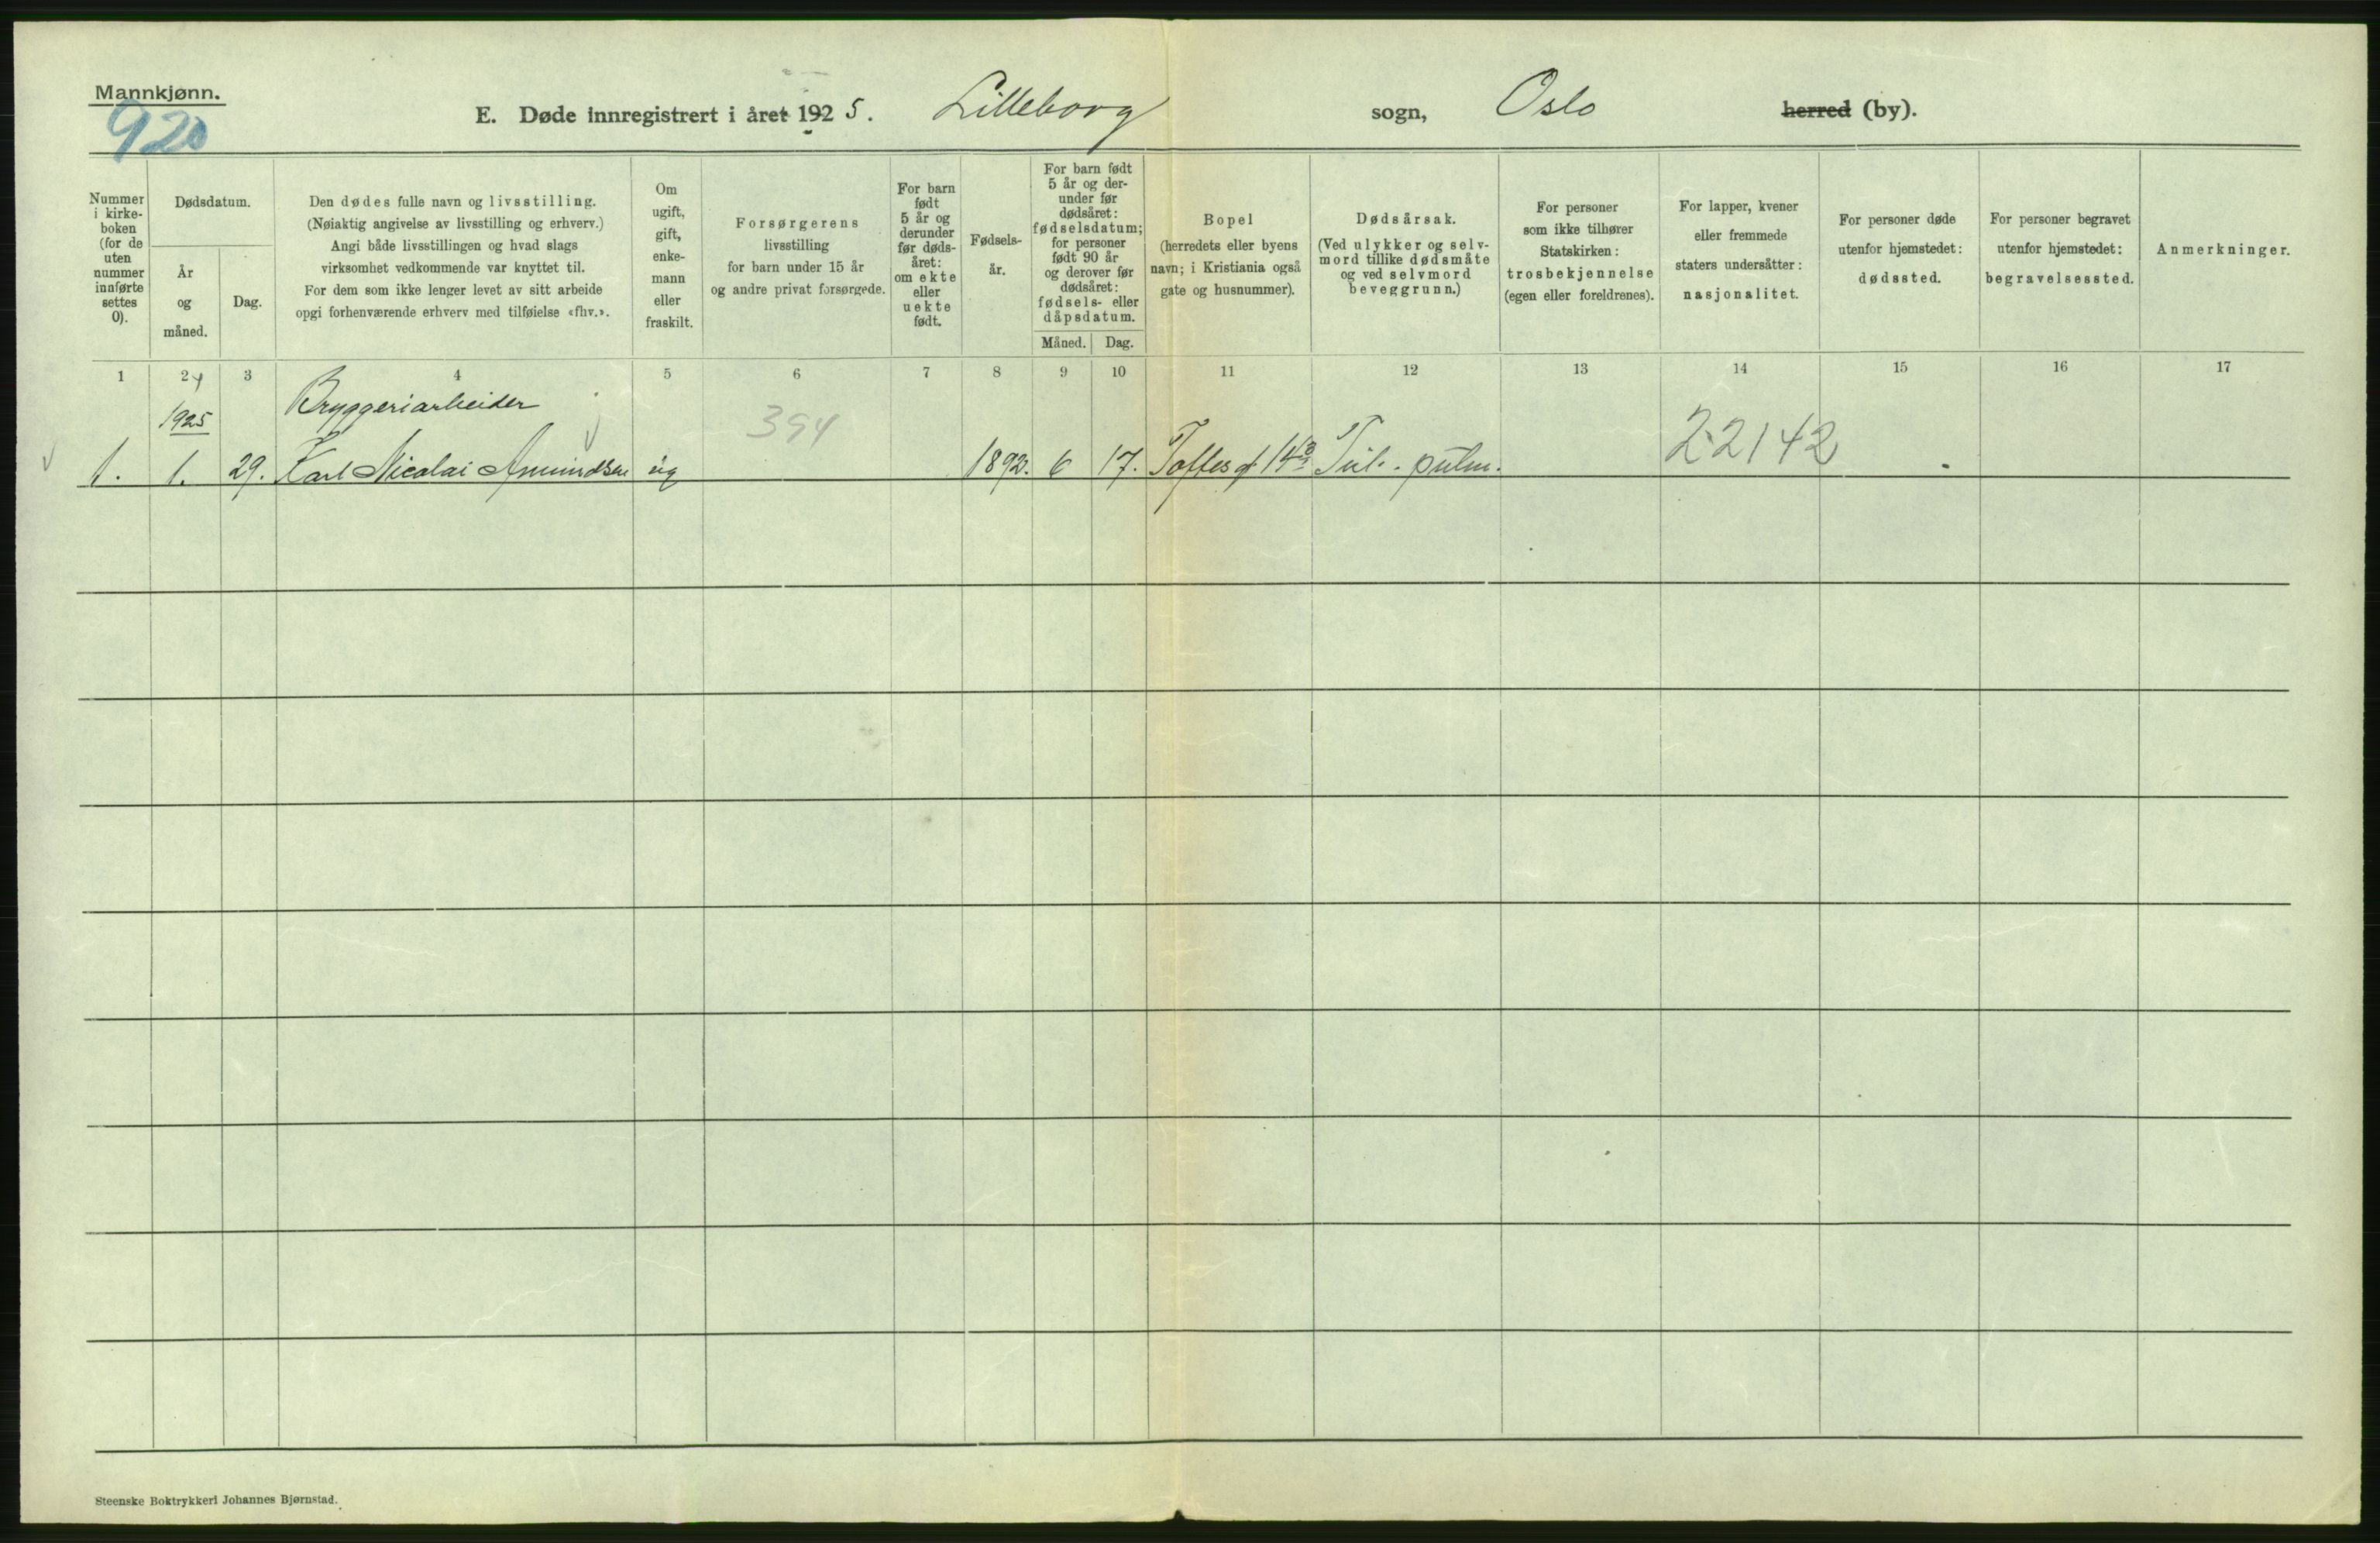 Mannkjønn.
920
E. Døde innregistrert i året 1925. Lilleborg sogn, Oslo herred (by).
Nummer
i kirke-
boken
(for de
uten
nummer
innførte
settes
0).
Dødsdatum.
År
og
måned.
Dag.
Den dødes fulle navn og livsstilling.
(Nøiaktig angivelse av livsstilling og erhverv.)
Angi både livsstillingen og hvad slags
virksomhet vedkommende var knyttet til.
For dem som ikke lenger levet av sitt arbeide
opgi forhenværende erhverv med tilføielse «fhv.».
Om
ugift,
gift,
enke-
mann
eller
fraskilt.
Forsørgerens
livsstilling
for barn under 15 år
og andre privat forsørgede.
For barn
født
5 år og
derunder
før døds-
året:
om ekte
eller
uekte
født.
Fødsels-
år.
For barn født
5 år og der-
under før
dødsåret:
fødselsdatum;
for personer
født 90 år
og derover før
dødsåret:
fødsels- eller
dåpsdatum.
Måned. Dag.
Bopel
(herredets eller byens
navn; i Kristiania også
gate og husnummer).
Dødsårsak.
(Ved ulykker og selv-
mord tillike dødsmåte
og ved selvmord
beveggrunn.)
For personer
som ikke tilhører
Statskirken:
trosbekjennelse
(egen eller foreldrenes).
For lapper, kvener
eller fremmede
staters undersåtter:
nasjonalitet.
For personer døde
utenfor hjemstedet:
dødssted.
For personer begravet
utenfor hjemstedet:
begravelsessted.
Anmerkninger.
1 2 3 4 5 6 7 8 9 10 11 12 13 14 15 16 17
Bryggeriarbeider
1925
394
22142
1. 1. 29. Karl Nicolai Amundsen ug 1892. 6 17. Toftes g. 14 Tub. pulm.
Steenske Boktrykkeri Johannes Bjørnstad.